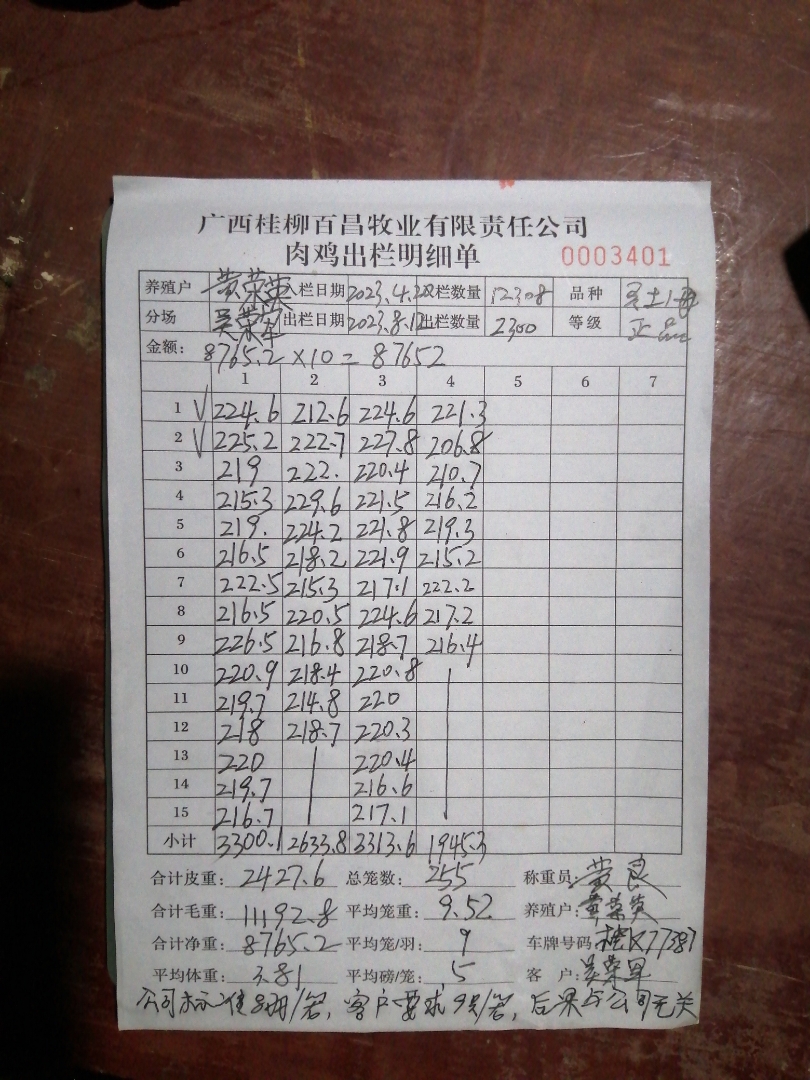 广西桂柳百昌牧业有限责任公司
肉鸡出栏明细单 0003401
养殖户 黄荣英 入栏日期 2023.4. 出栏数量 12308 品种
分场 吴荣军 出栏日期 2023.8.12 出栏数量 2300 等级 正品
金额: 8765.2×10=87652
1 2 3 4 5 6 7
1 √ 224.6 212.6 224.6 221.3
2 √ 225.2 222.7 227.8 206.8
3 219 222. 220.4 210.7
4 215.3 229.6 221.5 216.2
5 219. 224.2 221.8 219.3
6 216.5 218.2 221.9 215.2
7 222.5 215.3 217.1 222.2
8 216.5 220.5 224.6 217.2
9 226.5 216.8 218.7 216.4
10 220.9 218.4 220.8
11 219.7 214.8 220
12 218 218.7 220.3
13 220 220.4
14 219.7 216.6
15 216.7 217.1
小计 3300.1 2633.8 3313.6 1945.3
合计皮重: 2427.6 总笼数: 255 称重员: 黄良
合计毛重: 11192.8 平均笼重: 9.52 养殖户: 黄荣英
合计净重: 8765.2 平均笼/羽: 9 车牌号码 桂K77387
平均体重: 3.81 平均磅/笼: 5 客户: 吴荣军
公司标准 8羽/笼, 客户要求9只/笼, 后果与公司无关